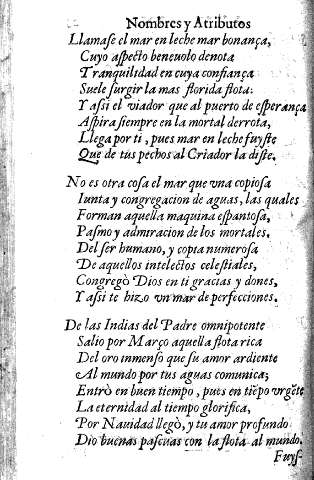 Nombres y Atributos
Llamase el mar en leche mar bonança,
Cuyo aspecto beneuolo denota
Tranquilidad en cuya confiança
Suele surgir la mas florida flota:
Y assi el viador que al puerto de esperança
Aspira siempre en la mortal derrota,
Llega por ti, pues mar en leche fuyste
Que de tus pechos al Criador la diste.
No es otra cosa el mar que vna copiosa
Iunta y congregacion de aguas, las quales
Forman aquella maquina espantosa,
Pasmo y admiracion de los mortales.
Del ser humano, y copia numerosa
De aquellos intelectos celestiales,
Congregò Dios en ti gracias y dones,
Y assi te hizo vn mar de perfecciones.
De las Indias del Padre omnipotente
Salio por Março aquella flota rica
Del oro inmenso que su amor ardiente
Al mundo por tus aguas comunica;
Entrò en buen tiempo, pues en tiẽpo vrgẽte
La eternidad al tiempo glorifica,
Por Nauidad llegò, y tu amor profundo
Dio buenas pascuas con la flota al mundo.
Fuys-